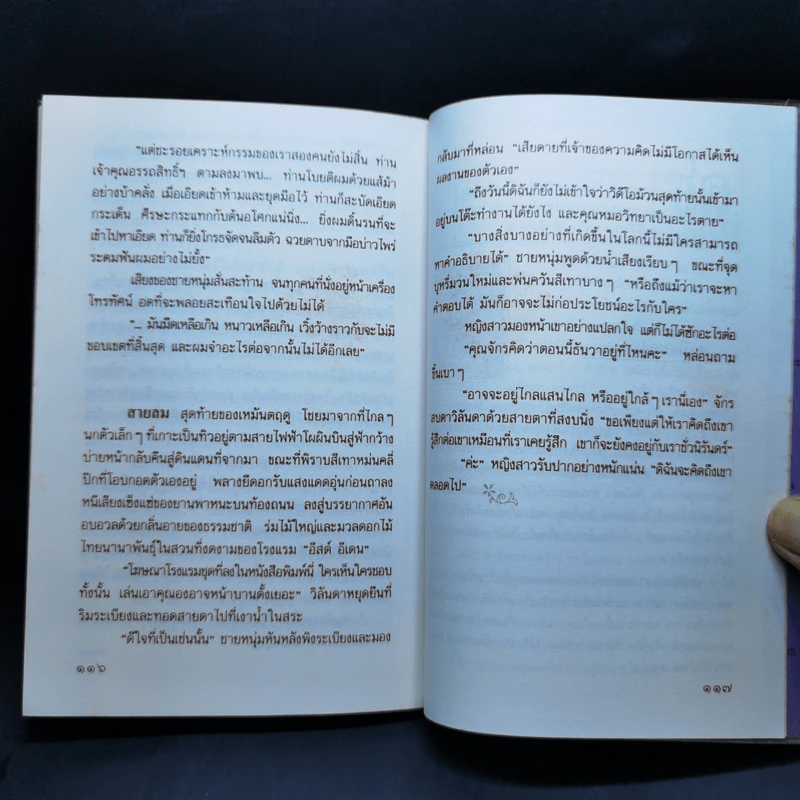 "แต่ชะรอยเคราะห์กรรมของเราสองคนยังไม่สิ้น ท่าน
เจ้าคุณอรรถสิทธิ์ฯ ตามลงมาพบ... ท่านโบยตีผมด้วยแส้ม้า
อย่างบ้าคลั่ง เมื่อเอียดเข้าห้ามและยุดมือไว้ ท่านก็สะบัดเอียด
กระเด็น ศีรษะกระแทกกับต้นอโศกแน่นิ่ง... ยิ่งผมดิ้นรนที่จะ
เข้าไปหาเอียด ท่านก็ยิ่งโกรธจัดจนลืมตัว ฉวยดาบจากมือบ่าวไพร่
ระดมฟันผมอย่างไม่ยั้ง"
เสียงของชายหนุ่มสั่นสะท้าน จนทุกคนที่นั่งอยู่หน้าเครื่อง
โทรทัศน์ อดที่จะพลอยสะเทือนใจไปด้วยไม่ได้
"... มันมืดเหลือเกิน หนาวเหลือเกิน เวิ้งว้างราวกับจะไม่มี
ขอบเขตที่สิ้นสุด และผมจำอะไรต่อจากนั้นไม่ได้อีกเลย"
สายลม สุดท้ายของเหมันตฤดู โชยมาจากที่ไกลๆ
นกตัวเล็กๆ ที่เกาะเป็นทิวอยู่ตามสายไฟฟ้าโผผินบินสู่ฟ้ากว้าง
บ่ายหน้ากลับคืนสู่ดินแดนที่จากมา ขณะที่พิราบสีเทาหม่นคลี่
ปีกที่โอบกอดตัวเองอยู่ พลางยืดอกรับแสงแดดอุ่นก่อนถาลง
หนีเสียงเซ็งแซ่ของยานพาหนะบนท้องถนน ลงสู่บรรยากาศอัน
อบอวลด้วยกลิ่นอายของธรรมชาติ ร่มไม้ใหญ่และมวลดอกไม้
ไทยนานาพันธุ์ในสวนที่งดงามของโรงแรม "อีสต์ อีเดน"
"โฆษณาโรงแรมชุดที่ลงในหนังสือพิมพ์นี่ ใครเห็นใครชอบ
ทั้งนั้น เล่นเอาคุณองอาจหน้าบานตั้งเยอะ" วิลันดาหยุดยืนที่
ริมระเบียงและทอดสายตาไปที่เงาน้ำในสระ
"ดีใจที่เป็นเช่นนั้น" ชายหนุ่มหันหลังพิงระเบียงและมอง
๑๑๖
กลับมาที่หล่อน "เสียดายที่เจ้าของความคิดไม่มีโอกาสได้เห็น
ผลงานของตัวเอง"
"ถึงวันนี้ดิฉันก็ยังไม่เข้าใจว่าวิดีโอม้วนสุดท้ายนั้นเข้ามา
อยู่บนโต๊ะทำงานได้ยังไง และคุณหมอวิทยาเป็นอะไรตาย"
"บางสิ่งบางอย่างที่เกิดขึ้นในโลกนี้ไม่มีใครสามารถ
หาคำอธิบายได้" ชายหนุ่มพูดด้วยน้ำเสียงเรียบๆ ขณะที่จุด
บุหรี่มวนใหม่และพ่นควันสีเทาบางๆ "หรือถึงแม้ว่าเราจะหา
คำตอบได้ มันก็อาจจะไม่ก่อประโยชน์อะไรกับใคร"
หญิงสาวมองหน้าเขาอย่างแปลกใจ แต่ก็ไม่ได้ซักอะไรต่อ
"คุณจักรคิดว่าตอนนี้ธันวาอยู่ที่ไหนคะ" หล่อนถาม
ขึ้นเบาๆ
"อาจจะอยู่ไกลแสนไกล หรืออยู่ใกล้ๆ เรานี่เอง" จักร
สบตาวิลันดาด้วยสายตาที่สงบนิ่ง "ขอเพียงแต่ให้เราคิดถึงเขา
รู้สึกต่อเขาเหมือนที่เราเคยรู้สึก เขาก็จะยังคงอยู่กับเราชั่วนิรันดร์"
"ค่ะ" หญิงสาวรับปากอย่างหนักแน่น "ดิฉันจะคิดถึงเขา
ตลอดไป"
๑๑๗